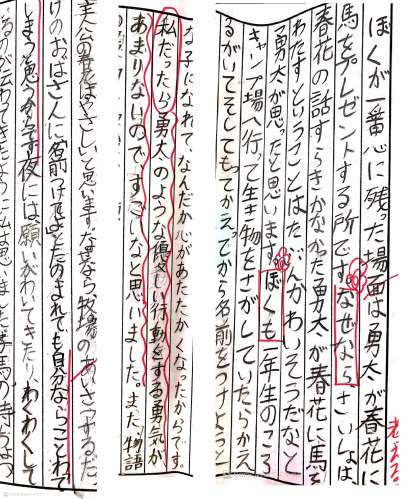 ぼくが一番心に残った場面は勇太が春花に
馬をプレゼントする所です。なぜならさいしょは、
春花の話すらきかなかった勇太が春花に馬を
わたすということはたぶんかわいそうだなと
勇太が思ったと思います。ぼくも一年生のころ
キャンプ場へ行って生き物をさがしていたらかえ
るがいてそしてもってかえってから名前をつけようと
老える。
な子になれて、なんだか心があたたかくなったからです。
私だったら勇太のような優しい行動をする勇気が
あまりないので、すごいなと思いました。また、物語
美公の春花はやさしいと思います。なぜなら牧場のあいさつするだ
けのおばさんに名前つけてよとたのまれても自分ならことわて
しまうと思うからです夜には、願いがわいてきたり、わくわくして